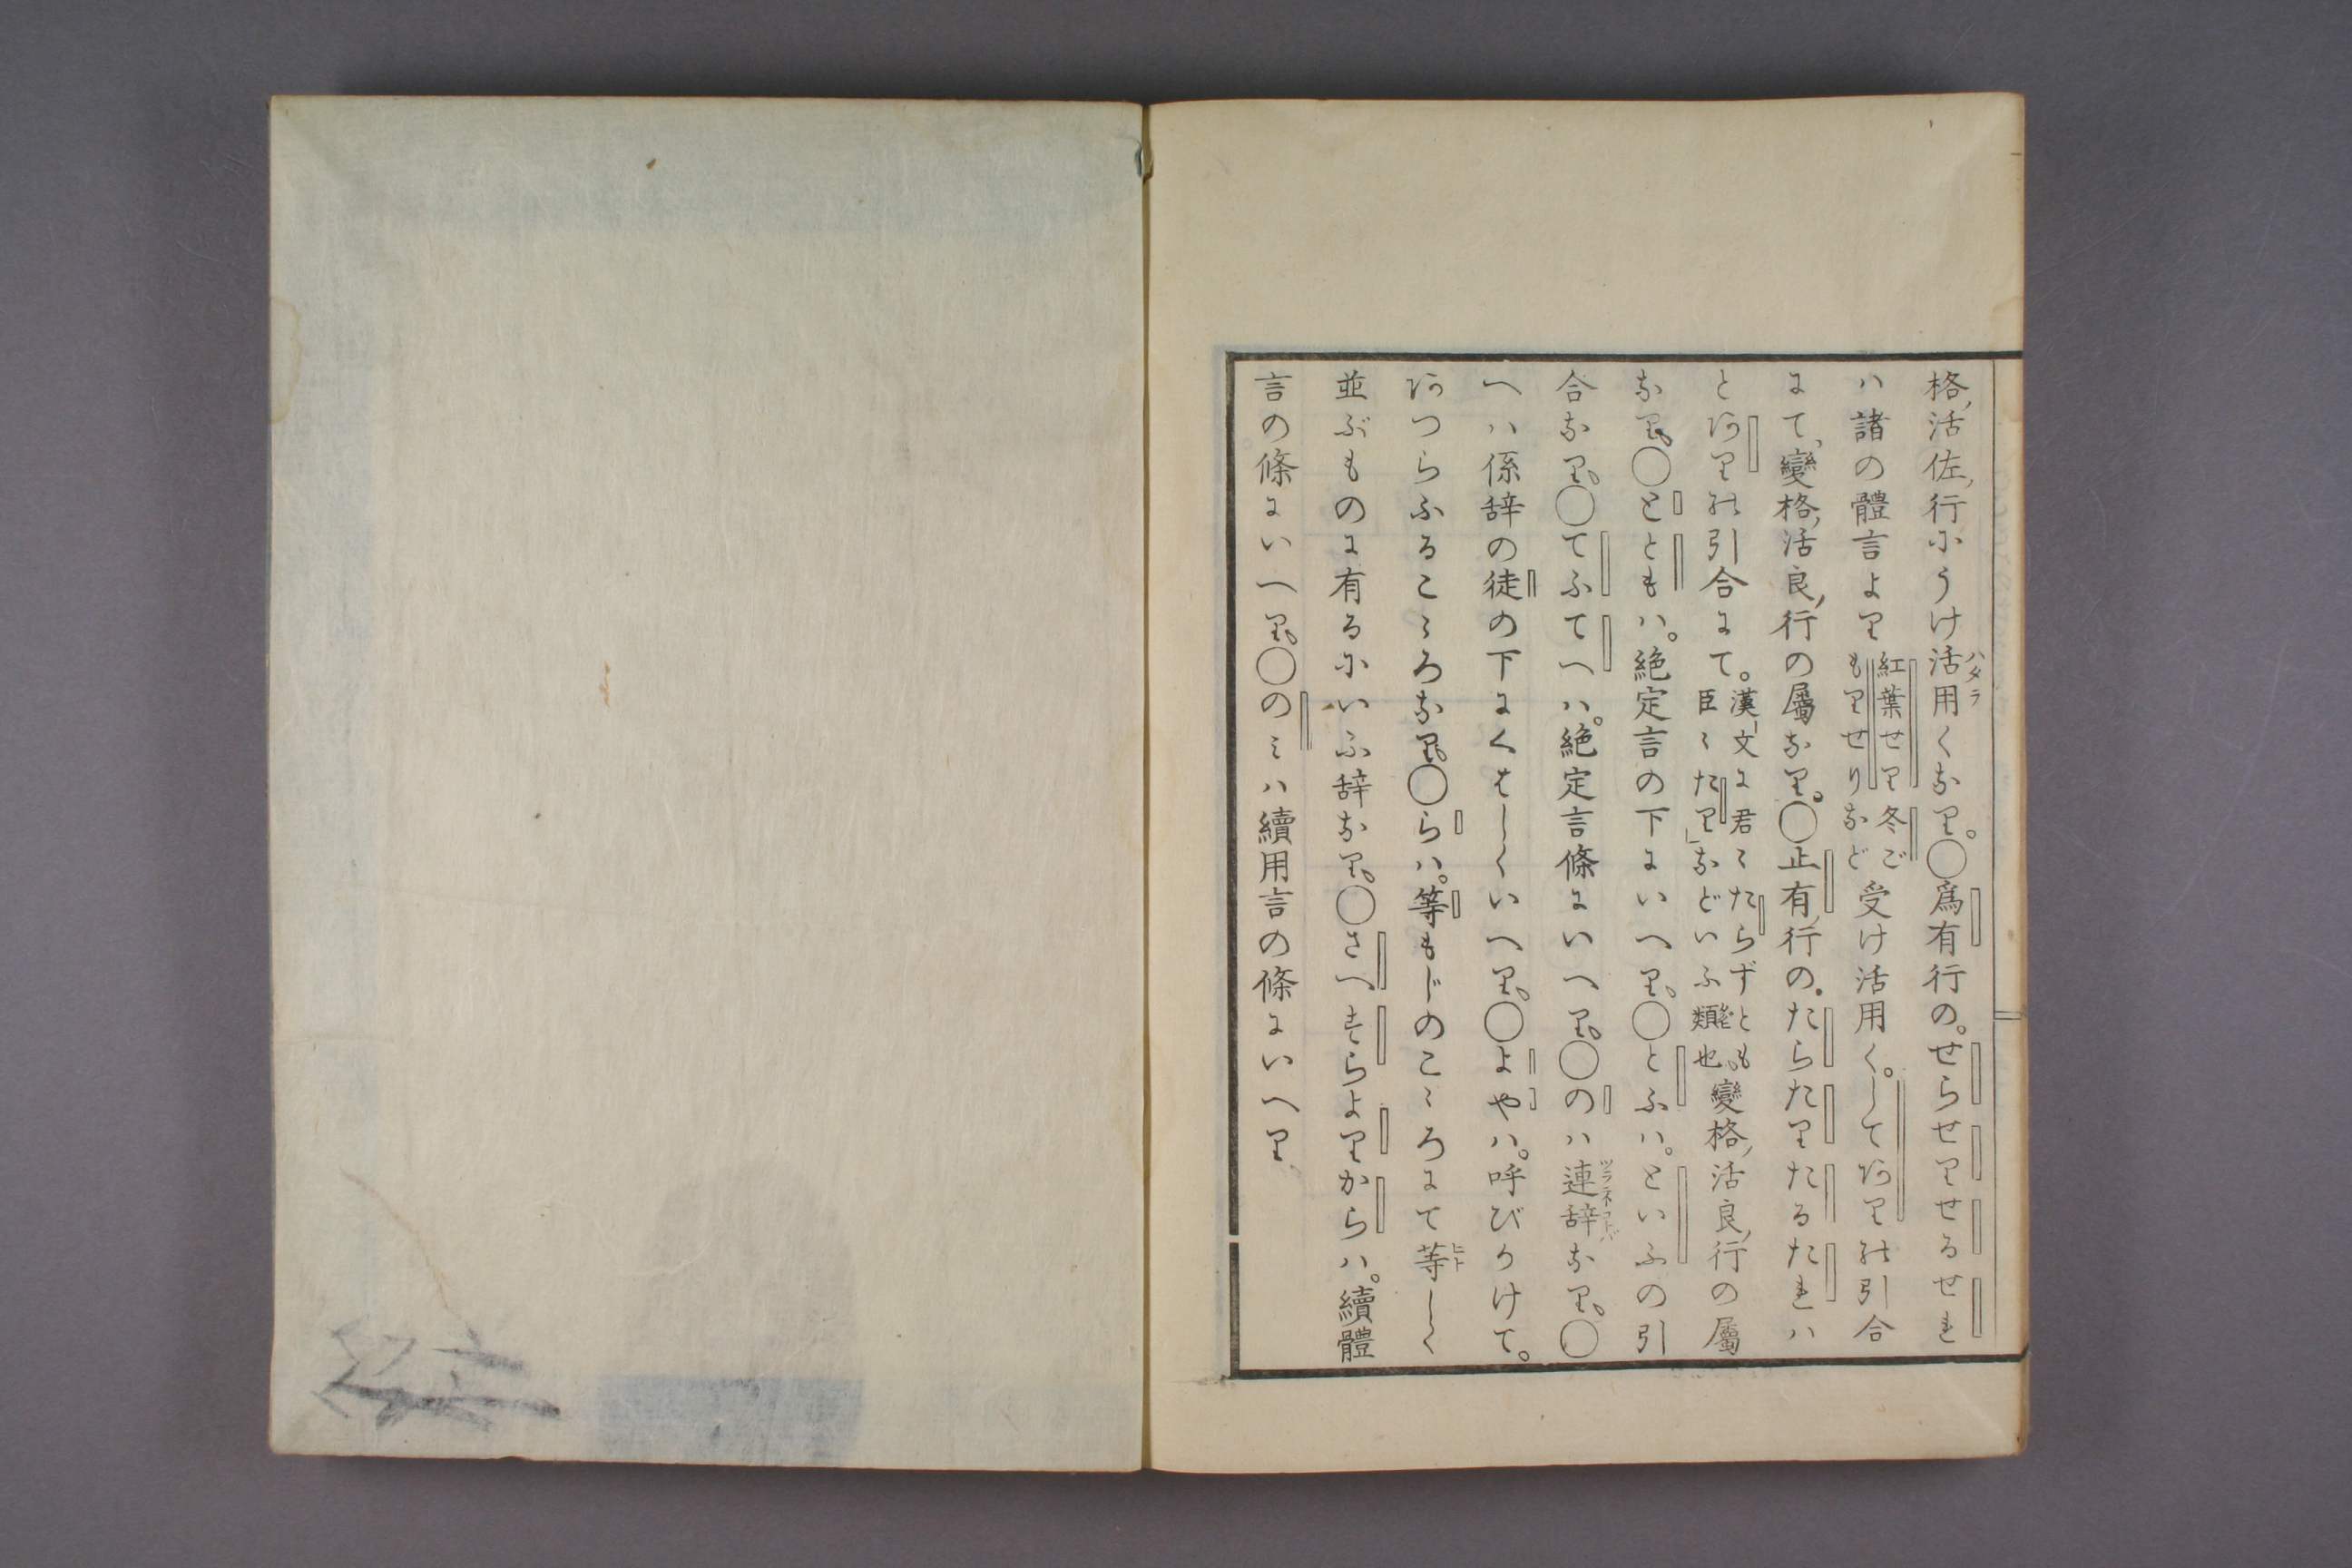 格活佐行にうけ活用くなり。〇爲有行の。せらせりせるせれ
ハタラ
ハ諸の體言より紅葉せり冬ごもりせりなど受け活用く。してあり引合
にて、變格活良行の屬なり。〇止有行の。たらたりたるたれハ
とあり引合にて。漢文に君〻たらずとも臣〻たり」などいふ類也。變格活良行の屬
なり。〇ととも ハ。絶定言の下にいへり。〇とふハ。といふの引
合なり。〇てふてへハ。絶定言條にいへり。〇のハ連辞なり。〇
ツラネコトバ
へハ係辞の徒の下にくはしくいへり。〇よやハ。呼びかけて。
あつらふるこゝろなり。〇らハ。等もじのこゝろにて等しく
ヒト
並ぶものに有るにいふ辞なり。〇さへすらよりからハ。續體
言の條にいへり。〇のミハ續用言の條にいへり